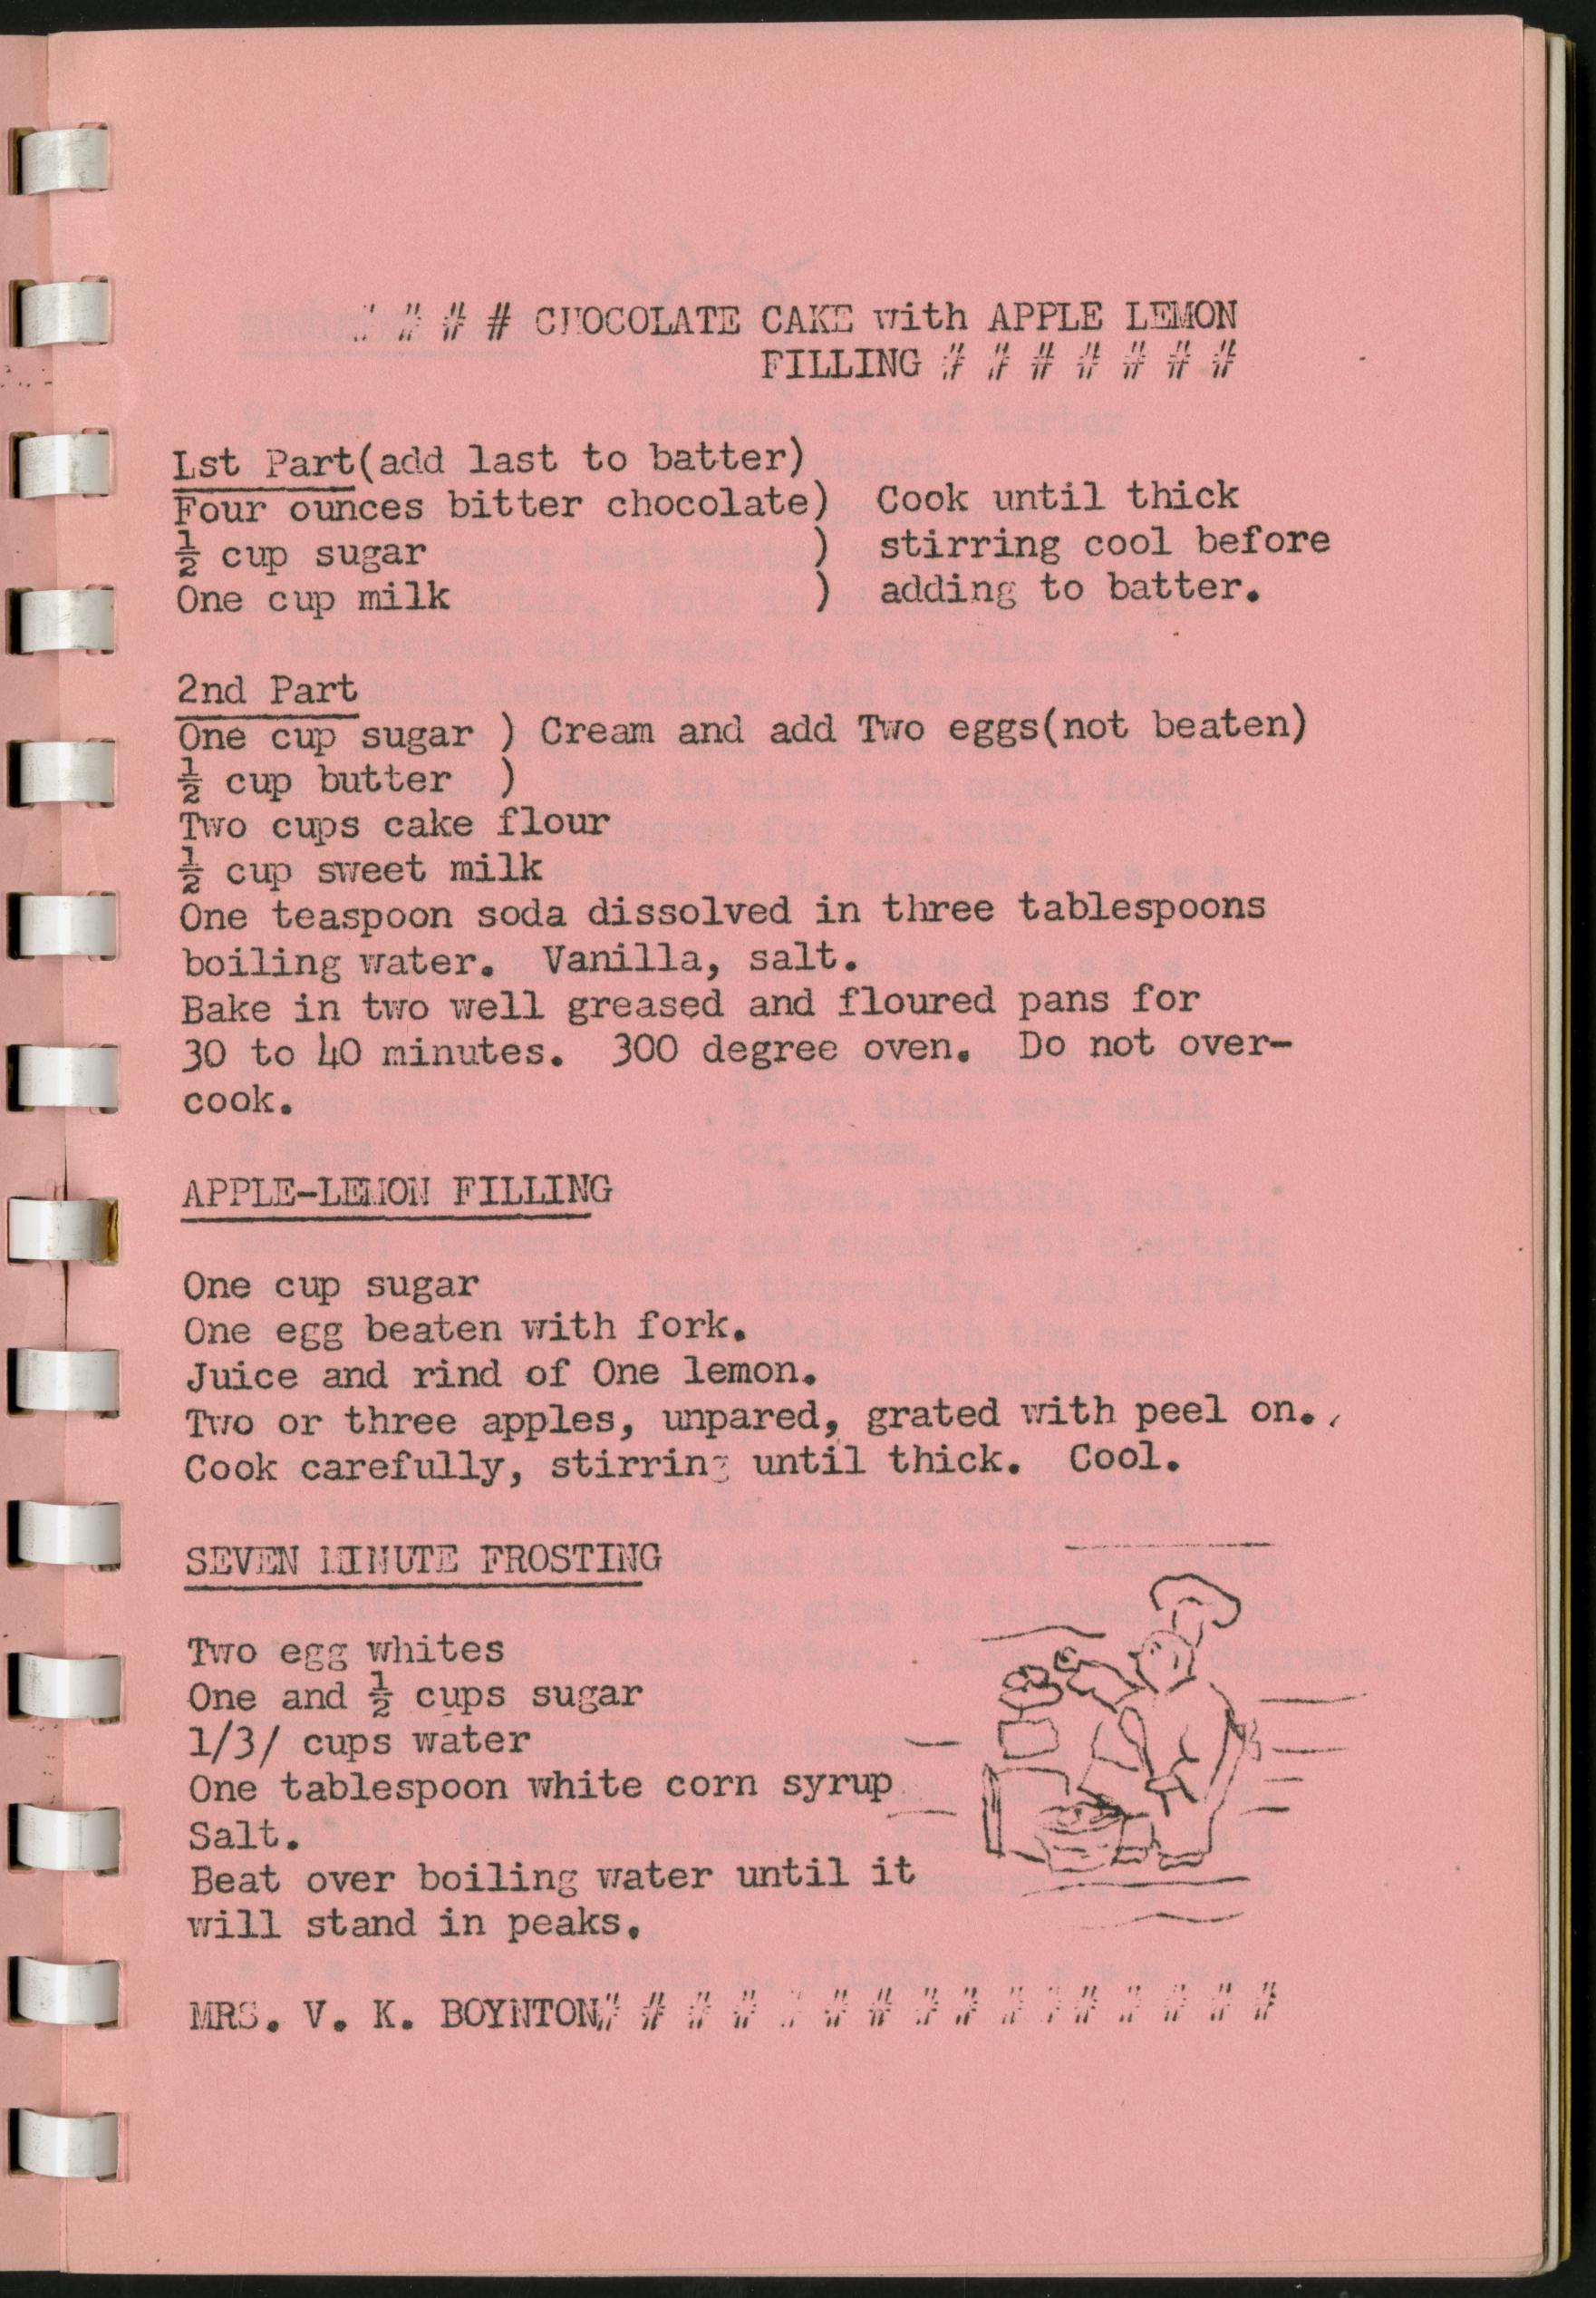 # # # # CHOCOLATE CAKE with APPLE LEMON
FILLING # # # # # # #
1st Part(add last to batter)
Four ounces bitter chocolate) Cook until thick
½ cup sugar ) stirring cool before
One cup milk ) adding to batter.
2nd Part
One cup sugar ) Cream and add Two eggs(not beaten)
½ cup butter )
Two cups cake flour
½ cup sweet milk
One teaspoon soda dissolved in three tablespoons
boiling water. Vanilla, salt.
Bake in two well greased and floured pans for
30 to 40 minutes. 300 degree oven. Do not over-
cook.
APPLE-LEMON FILLING
One cup sugar
One egg beaten with fork.
Juice and rind of One lemon.
Two or three apples, unpared, grated with peel on.
Cook carefully, stirring until thick. Cool.
SEVEN MINUTE FROSTING
Two egg whites
One and ½ cups sugar
1/3/ cups water
One tablespoon white corn syrup
Salt.
Beat over boiling water until it
will stand in peaks.
MRS. V. K. BOYNTON# # # # # # # # # # # # # # # #